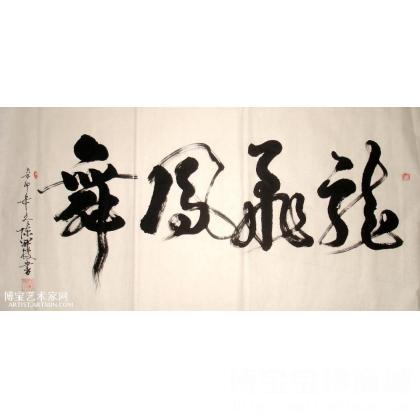 龍飛鳳舞
辛卯年冬陈
書
博宝艺术家网
ARTIST.ARTXUN.COM